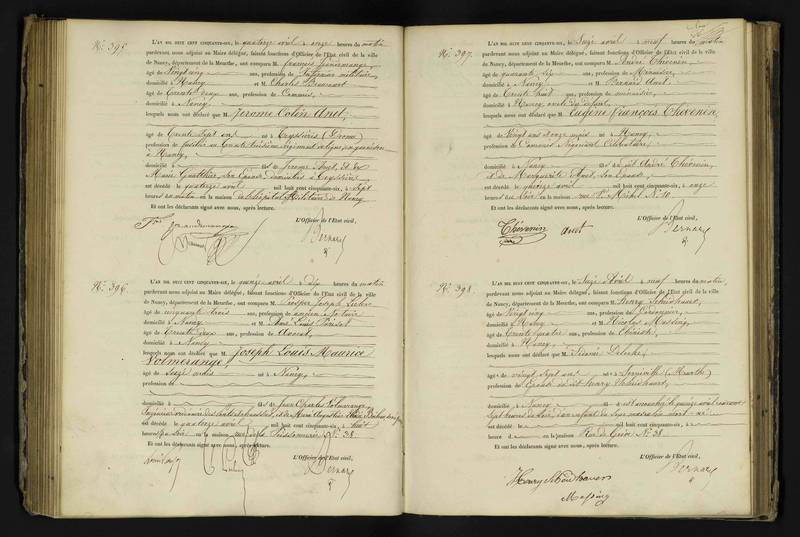 N° 395
L'AN MIL HUIT CENT CINQUANTE-SIX, le quatorze avril à onze heures du matin
pardevant nous adjoint au Maire délégué, faisant fonctions d'Officier de l'État civil de la ville
de Nancy, département de la Meurthe, ont comparu M. françois
âgé de Vingt cinq ans, profession de Infirmier militaire,
domicilié à Nancy et M. Charles
âgé de Trente deux ans, profession de Commis,
domicilié à Nancy
lesquels nous ont déclaré que M. Jerome Colin Anet,
âgé de Trente Sept ans né à Teyssières (Drome)
profession de fusilier au régiment de ligne, en garnison
à Nancy,
domicilié à fils de Jerome Anet, et de
Marie Gauthier, son Epouse, domiciliés à Teyssières
est décédé le quatorze avril mil huit cent cinquante-six, à sept
heures du matin en la maison de l'hôpital Militaire de Nancy
Et ont les déclarants signé avec nous, après lecture.
L'Officier de l'État civil,
Bernard
N° 396
L'AN MIL HUIT CENT CINQUANTE-SIX, le quinze avril à dix heures du matin
pardevant nous adjoint au Maire délégué, faisant fonctions d'Officier de l'État civil de la ville
de Nancy, département de la Meurthe, ont comparu M. Prosper Joseph
âgé de cinquante trois ans, profession de ancien Notaire
domicilié à Nancy et M. Louis
âgé de Trente deux ans, profession de Avocat,
domicilié à Nancy
lesquels nous ont déclaré que M. Joseph Louis Maurice
Volmerange,
âgé de Seize mois né à Nancy,
profession de
domicilié à fils de Jean Charles Volmerange
Ingénieur ordinaire des Ponts et chaussées, et de Marie Augustine
est décédé le quatorze avril mil huit cent cinquante-six, à huit
heures du Soir en la maison rue de la Poissonnerie N° 38
Et ont les déclarants signé avec nous, après lecture.
L'Officier de l'État civil,
Bernard
N° 397
L'AN MIL HUIT CENT CINQUANTE-SIX, le Seize avril à neuf heures du matin
pardevant nous adjoint au Maire délégué, faisant fonctions d'Officier de l'État civil de la ville
de Nancy, département de la Meurthe, ont comparu M. André Thévenin,
âgé de quarante six ans, profession de Menuisier,
domicilié à Nancy et M. Bernard Anet
âgé de Trente huit ans, profession de menuisier,
domicilié à Nancy, oncle du défunt,
lesquels nous ont déclaré que M. Eugène François Thévenin,
âgé de Vingt ans et onze mois né à Nancy,
profession de Commis Négociant Célibataire,
domicilié à Nancy fils de André Thévenin,
et de Marguerite Anet, son Epouse,
est décédé le quinze avril mil huit cent cinquante-six, à onze
heures du Soir en la maison rue St Michel N° 40
Et ont les déclarants signé avec nous, après lecture.
L'Officier de l'État civil,
Thévenin anet Bernard
N° 398
L'AN MIL HUIT CENT CINQUANTE-SIX, le Seize Avril à neuf heures du matin,
pardevant nous adjoint au Maire délégué, faisant fonctions d'Officier de l'État civil de la ville
de Nancy, département de la Meurthe, ont comparu M. Henry
âgé de Vingt cinq ans, profession de
domicilié à Nancy et M. Nicolas Messing,
âgé de Trente quatre ans, profession de Ebéniste,
domicilié à Nancy,
lesquels nous ont déclaré que M.
âgé de vingt sept ans né à (Meurthe)
profession de Epouse du dit Henry
domicilié à Nancy est accouchée le quinze avril courant
Sept heures du Soir, d'un enfant du Sexe masculin mort né
est décédé le mil huit cent cinquante-six, à
heure d en la maison Rue de Grève N° 38
Et ont les déclarants signé avec nous, après lecture.
L'Officier de l'État civil,
Bernard
Henry
Messing